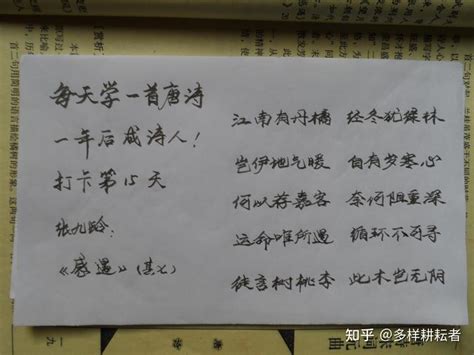 每天学一首唐诗
一年后成诗人！
打卡第15天
张九龄：
《感遇》(其七)
江南有丹橘 经冬犹绿林
岂伊地气暖 自有岁寒心
何以荐嘉客 奈何阻重深
运命唯所遇 循环不可寻
徒言树桃李 此木岂无阴
知乎 @多样耕耘者